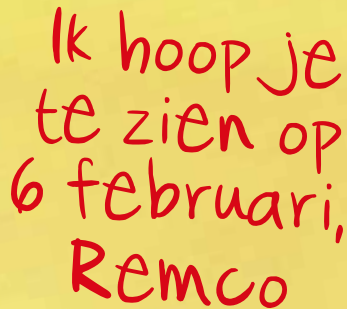 Ik hoop je
te zien op
6 februari,
Remco